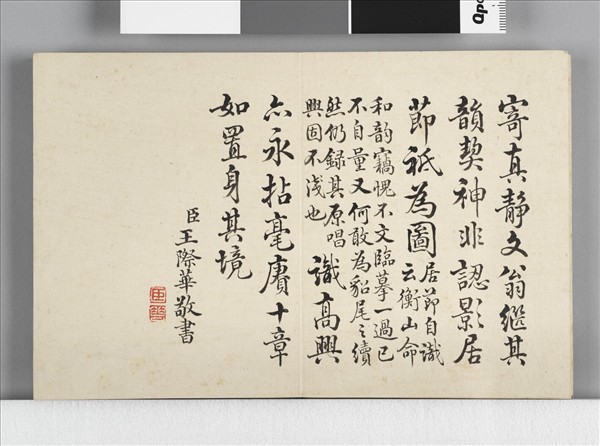 寄真静文翁繼其
韻契神非認影居
節祇為圖居節自識
云衡山命
和韵竊愧不文臨摹一過已
不自量又何敢為貂尾之續
然仍録其原唱
興固不淺也
識高興
亦永拈毫賡十章
如置身其境
臣王際華敬書